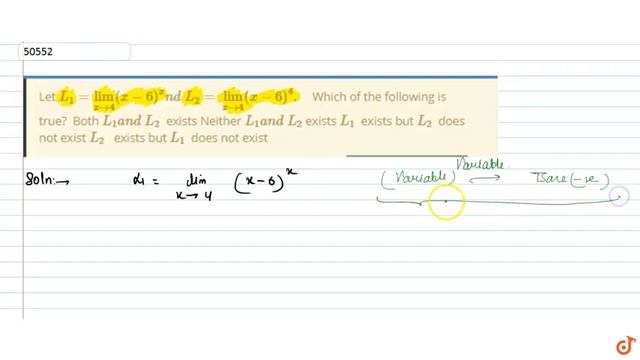 50552
Let L₁ = lim x→4 (x − 6)ˣnd L₂ = lim x→4 (x − 6)⁴. Which of the following is
true? Both L₁and L₂ exists Neither L₁and L₂ exists L₁ exists but L₂ does
not exist L₂ exists but L₁ does not exist
Soln:→ L₁ = lim x→4 (x−6)ˣ
(Variable) Variable → Base (−ve)